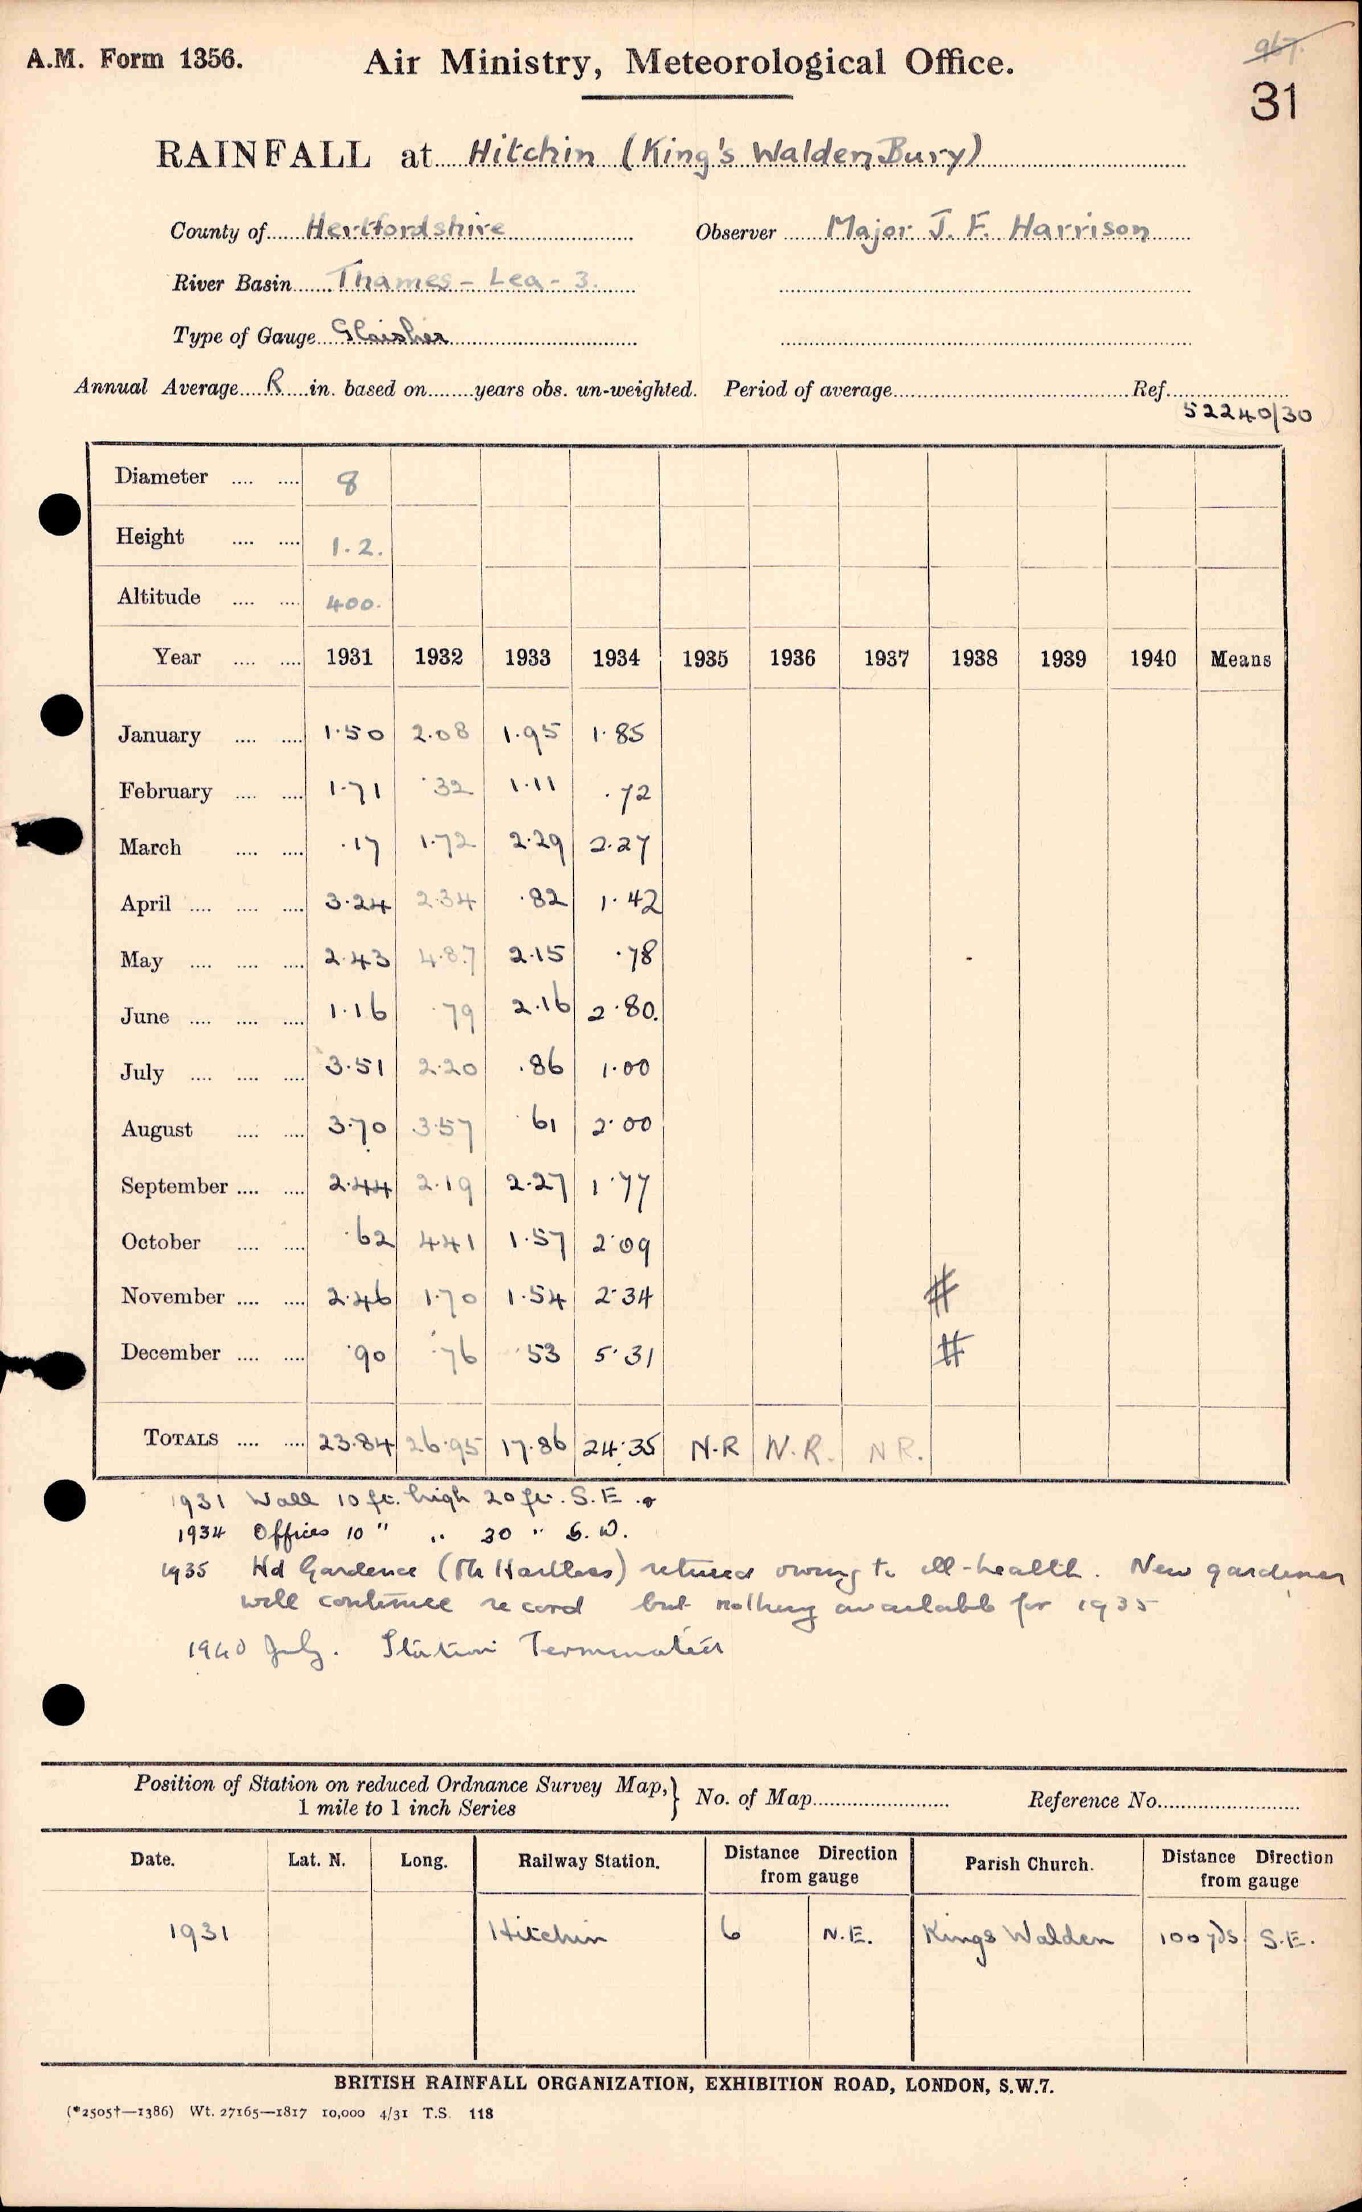 967.
A.M. Form 1356.
Air Ministry, Meteorological Office.
31
RAINFALL at Hitchin (King's Walden Bury)
County of Hertfordshire Observer Major J. F. Harrison
River Basin Thames - Lea - 3.
Type of Gauge Glaisher
Annual Average R in. based on years obs. un-weighted. Period of average Ref.
52240/30
Diameter 8
Height 1.2.
Altitude 400.
Year 1931 1932 1933 1934 1935 1936 1937 1938 1939 1940 Means
January 1.50 2.08 1.95 1.85
February 1.71 .32 1.11 .72
March .17 1.72 2.29 2.27
April 3.24 2.34 .82 1.42
May 2.43 4.87 2.15 .78
June 1.16 .79 2.16 2.80.
July 3.51 2.20 .86 1.00
August 3.70 3.57 .61 2.00
September 2.44 2.19 2.27 1.77
October .62 4.41 1.57 2.09
November 2.46 1.70 1.54 2.34 #
December .90 .76 .53 5.31 #
TOTALS 23.84 26.95 17.86 24.35 N.R N.R. N.R.
1931 Wall 10 ft. high 20 ft. S.E.
1934 Offices 10 " " 30 " S.W.
1935 Hd Gardener (Mr ) retired owing to ill-health. New gardener
will continue record but nothing available for 1935
1940 July. Station Terminated
Position of Station on reduced Ordnance Survey Map, } No. of Map Reference No.
1 mile to 1 inch Series
Date. Lat. N. Long. Railway Station. Distance Direction from gauge Parish Church. Distance Direction from gauge
1931 Hitchin 6 N.E. Kings Walden 100 yds S.E.
BRITISH RAINFALL ORGANIZATION, EXHIBITION ROAD, LONDON, S.W.7.
(*2505†—1386) Wt. 27165—1817 10,000 4/31 T.S. 118